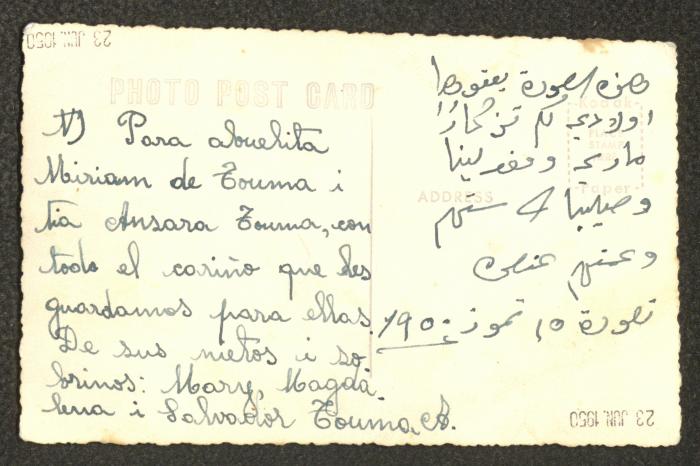 23 JUN. 1950
PHOTO POST CARD
Para abuelita
Miriam de Touma i
tia Ansara Touma, con
todo el cariño que les
guardamos para ellas.
De sus nietos i so
brinos: Mary, Magda
lena i Salvador Touma A.
هذه الصورة
اولادي لكم تذكارًا
ماري
وعمتهم
تموز ١٩٥٠
Kodak
PLACE
STAMP
HERE
Paper
ADDRESS
23 JUN. 1950